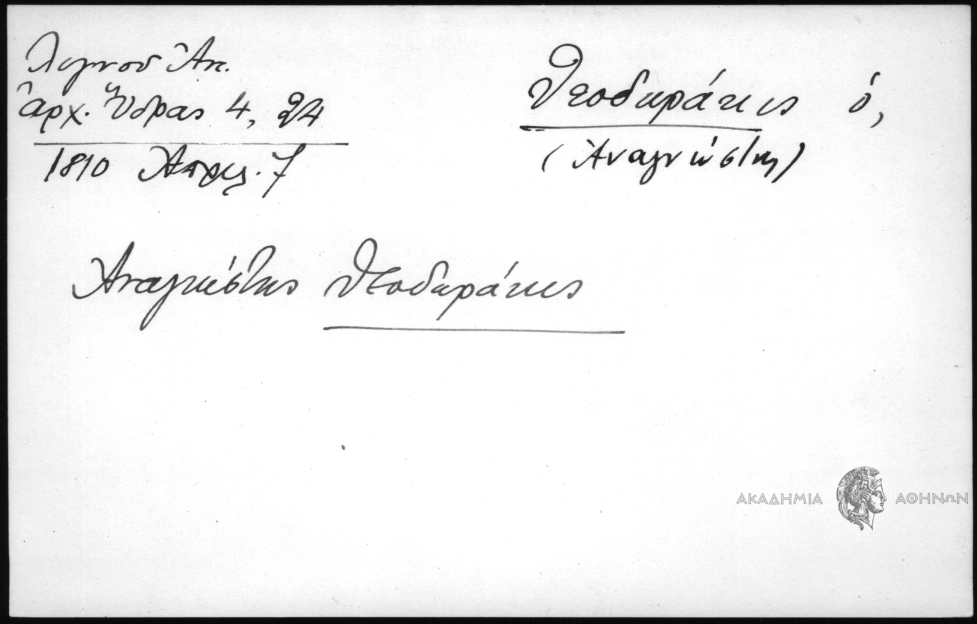 Λιγνοῦ Ἀν.
ἀρχ. Ὕδρας 4, 24
1810 Ἀπριλ. 7
Θεοδωράκης ὁ,
(Ἀναγνώστης)
Ἀναγνώστης Θεοδωράκης
ΑΚΑΔΗΜΙΑ ΑΘΗΝΩΝ